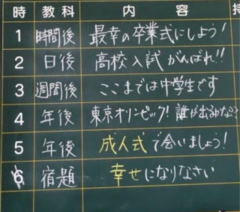 時 教科 内容
1 時間後 最幸の卒業式にしよう!
2 日後 高校入試がんばれ!!
3 週間後 ここまでは中学生です
4 年後 東京オリンピック!誰が出るかな?
5 年後 成人式で会いましょう!
6 宿題 幸せになりなさい